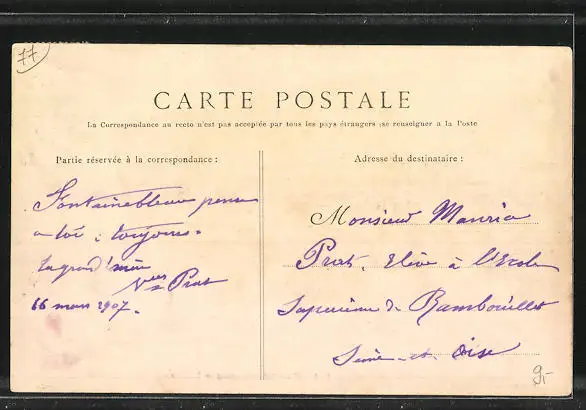 77
CARTE POSTALE
La Correspondance au recto n'est pas acceptée par tous les pays étrangers (se renseigner à la Poste
Partie réservée à la correspondance :
Fontainebleau pense
a toi : toujours.
ta grand'mère
Vve Prat
16 mars 1907.
Adresse du destinataire :
Monsieur Maurice
Prat. Elève à l'Ecole
Supérieure de Rambouillet
Seine-et-Oise
9,-